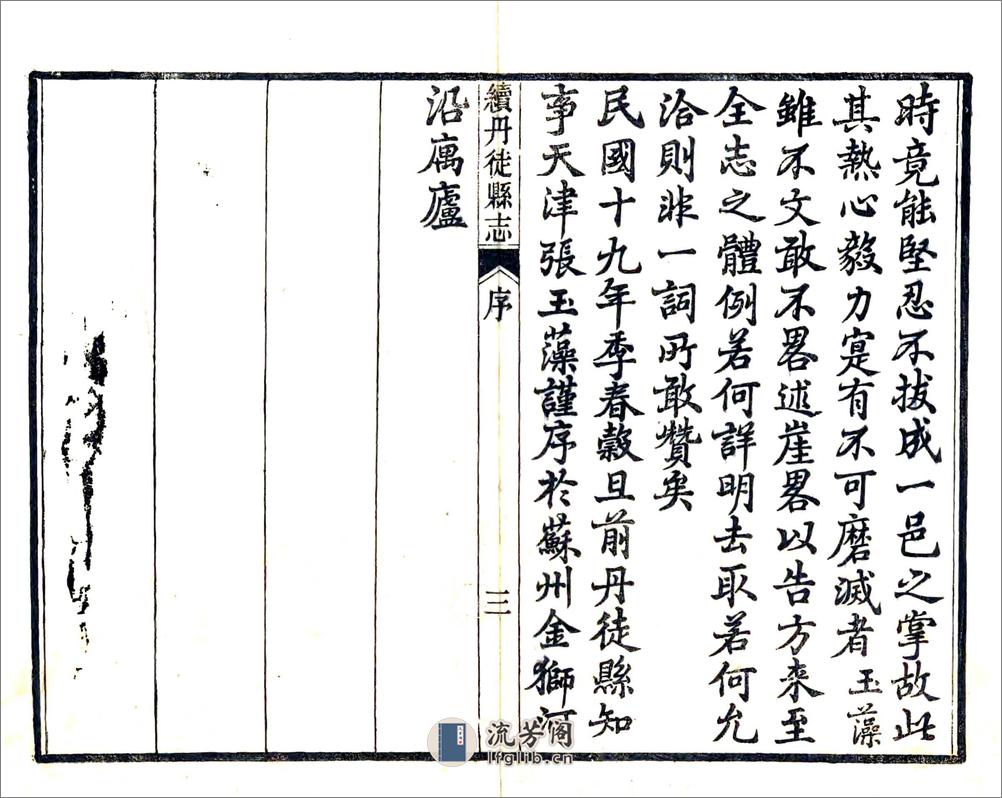 時竟能堅忍不拔成一邑之掌故此
其熱心毅力寔有不可磨滅者玉藻
雖不文敢不畧述崖畧以告方來至
全志之體例若何詳明去取若何允
洽則非一詞所敢贊矣
民國十九年季春穀旦前丹徒縣知
事天津張玉藻謹序於蘇州金獅河
續丹徒縣志 序 三
沿庽廬
流芳阁
lfglib.cn